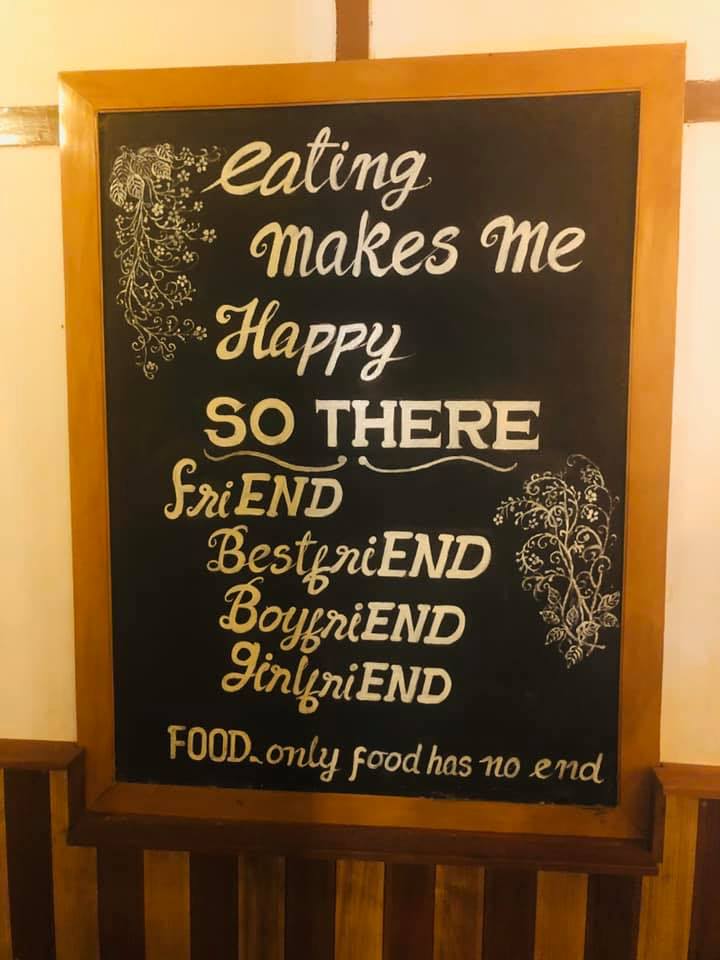 eating
makes me
Happy
SO THERE
friEND
BestfriEND
BoyfriEND
girlfriEND
FOOD. only food has no end